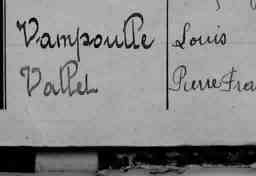 Vampoulle Louis
Vallet Pierre Fra